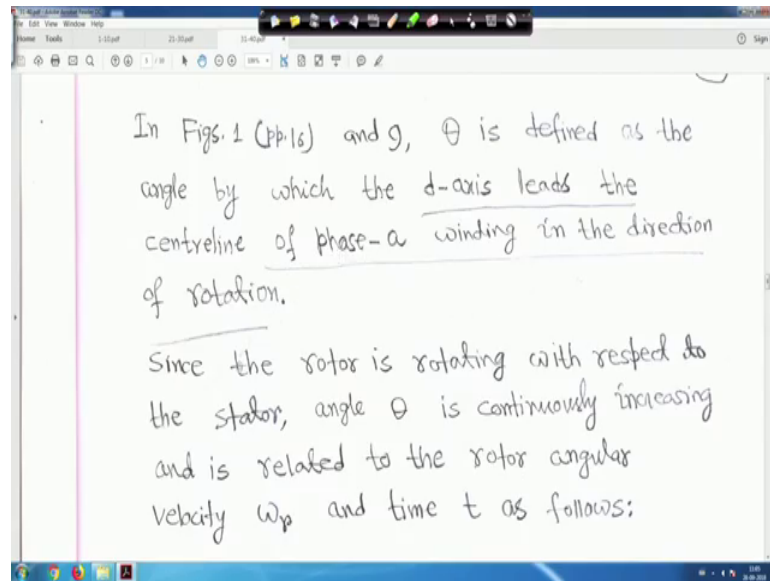 File Edit View Window Help
Home Tools 1-10.pdf 21-30.pdf 31-40.pdf Sign
In Figs. 1 (pp.16) and 9, θ is defined as the
angle by which the d-axis leads the
centreline of phase-a winding in the direction
of rotation.
Since the rotor is rotating with respect to
the stator, angle θ is continuously increasing
and is related to the rotor angular
velocity ωr and time t as follows: